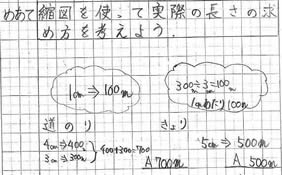 めあて縮図を使って実際の長さの求
め方を考えよう.
1cm⇒100m
300÷3=100m
1cmあたり100m
道のり
4cm⇒400
3cm⇒300m
400+300=700
A 700m
きょり
5cm⇒500m
A 500m